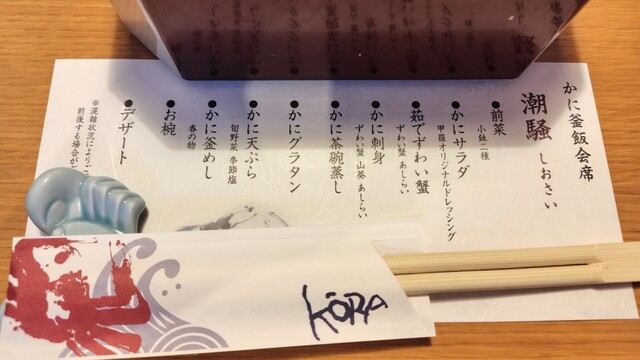 かに釜飯会席
潮騒 しおさい
●前菜
小鉢二種
●かにサラダ
甲羅オリジナルドレッシング
●茹でずわい蟹
ずわい蟹 あしらい
●かに刺身
ずわい蟹 山葵 あしらい
●かに茶碗蒸し
●かにグラタン
●かに天ぷら
旬野菜 季節塩
●かに釜めし
●お椀
春の物
●デザート
※混雑状況により
前後する場合が
KŌRA